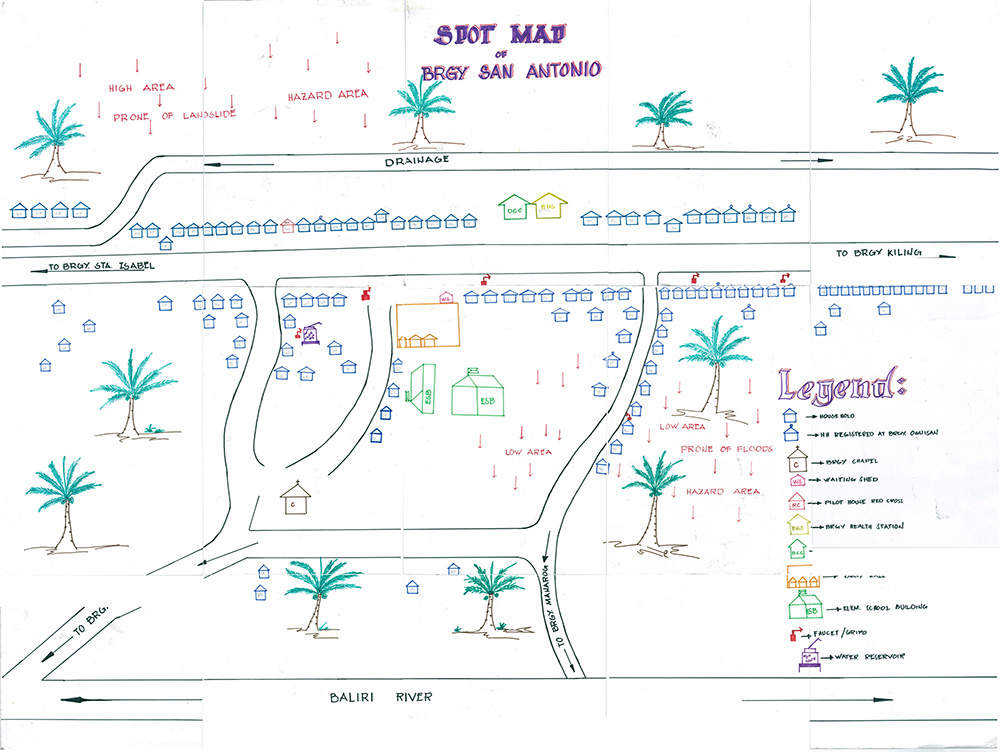 SPOT MAP
OF
BRGY SAN ANTONIO
HIGH AREA
PRONE OF LANDSLIDE
HAZARD AREA
DRAINAGE
DCC
BHS
TO BRGY. STA. ISABEL
TO BRGY KILING
WS
ESB
ESB
LOW AREA
LOW AREA
PRONE OF FLOODS
HAZARD AREA
C
TO BRGY. MAHAROG
TO BRG.
BALIRI RIVER
Legend:
HOUSEHOLD
HH REGISTERED AT BRGY.
C BRGY CHAPEL
WS WAITING SHED
RC PILOT HOUSE RED CROSS
BHS BRGY HEALTH STATION
DCC
ESB ELEM. SCHOOL BUILDING
FAUCET/GRIPO
WATER RESERVOIR